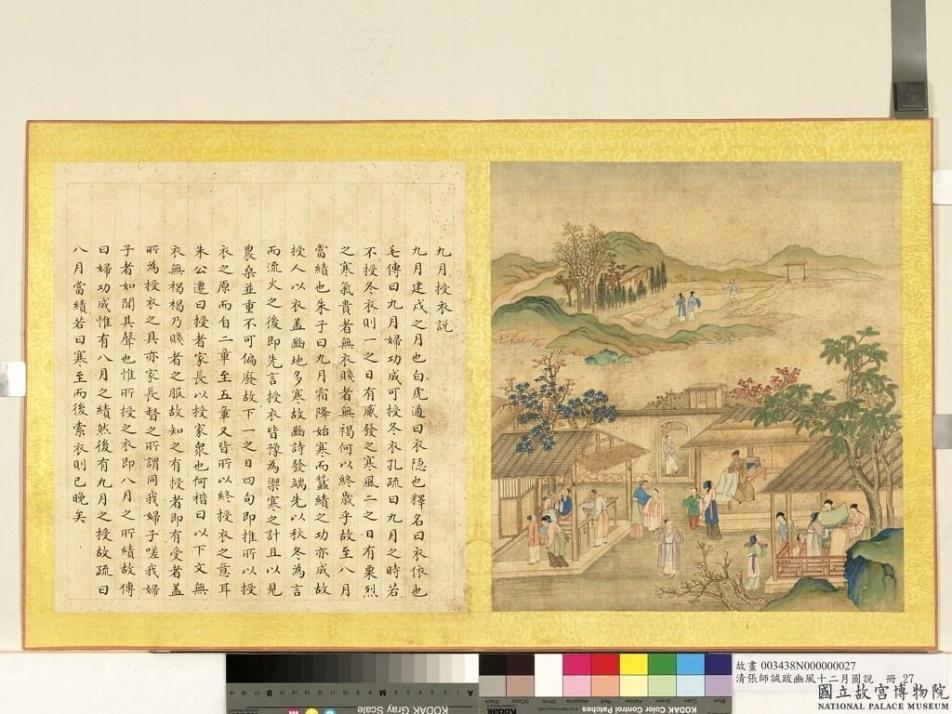 九月授衣說
九月建戌之月也白虎通曰衣隱也釋名曰衣依也
毛傳曰九月婦功成可授冬衣孔疏曰九月之時若
不授冬衣則一之日有觱發之寒風二之日有栗烈
之寒氣貴者無衣賤者無褐何以終歲乎故至八月
當績也朱子曰九月霜降始寒而蠶績之功亦成故
授人以衣蓋豳地多寒故豳詩發端先以秋冬為言
而流火之後即先言授衣皆豫為禦寒之計且以見
農桑並重不可偏廢故下一之日四句即推所以授
衣之原而自二章至五章又皆所以終授衣之意耳
朱公遷曰授者家長以授家衆也何楷曰以下文無
衣無褐褐乃賤者之服故知之有授者即有受者蓋
所為授衣之具亦家長督之所謂同我婦子嗟我婦
子者如聞其聲也惟所授之衣即八月之所績故傳
曰婦功成惟有八月之績然後有九月之授故疏曰
八月當績若曰寒至而後索衣則已晚矣
故畫 003438N000000027
清張師誠跋豳風十二月圖說 冊 27
國立故宮博物院
NATIONAL PALACE MUSEUM
KODAK Gray Scale
KODAK Color Control Patches